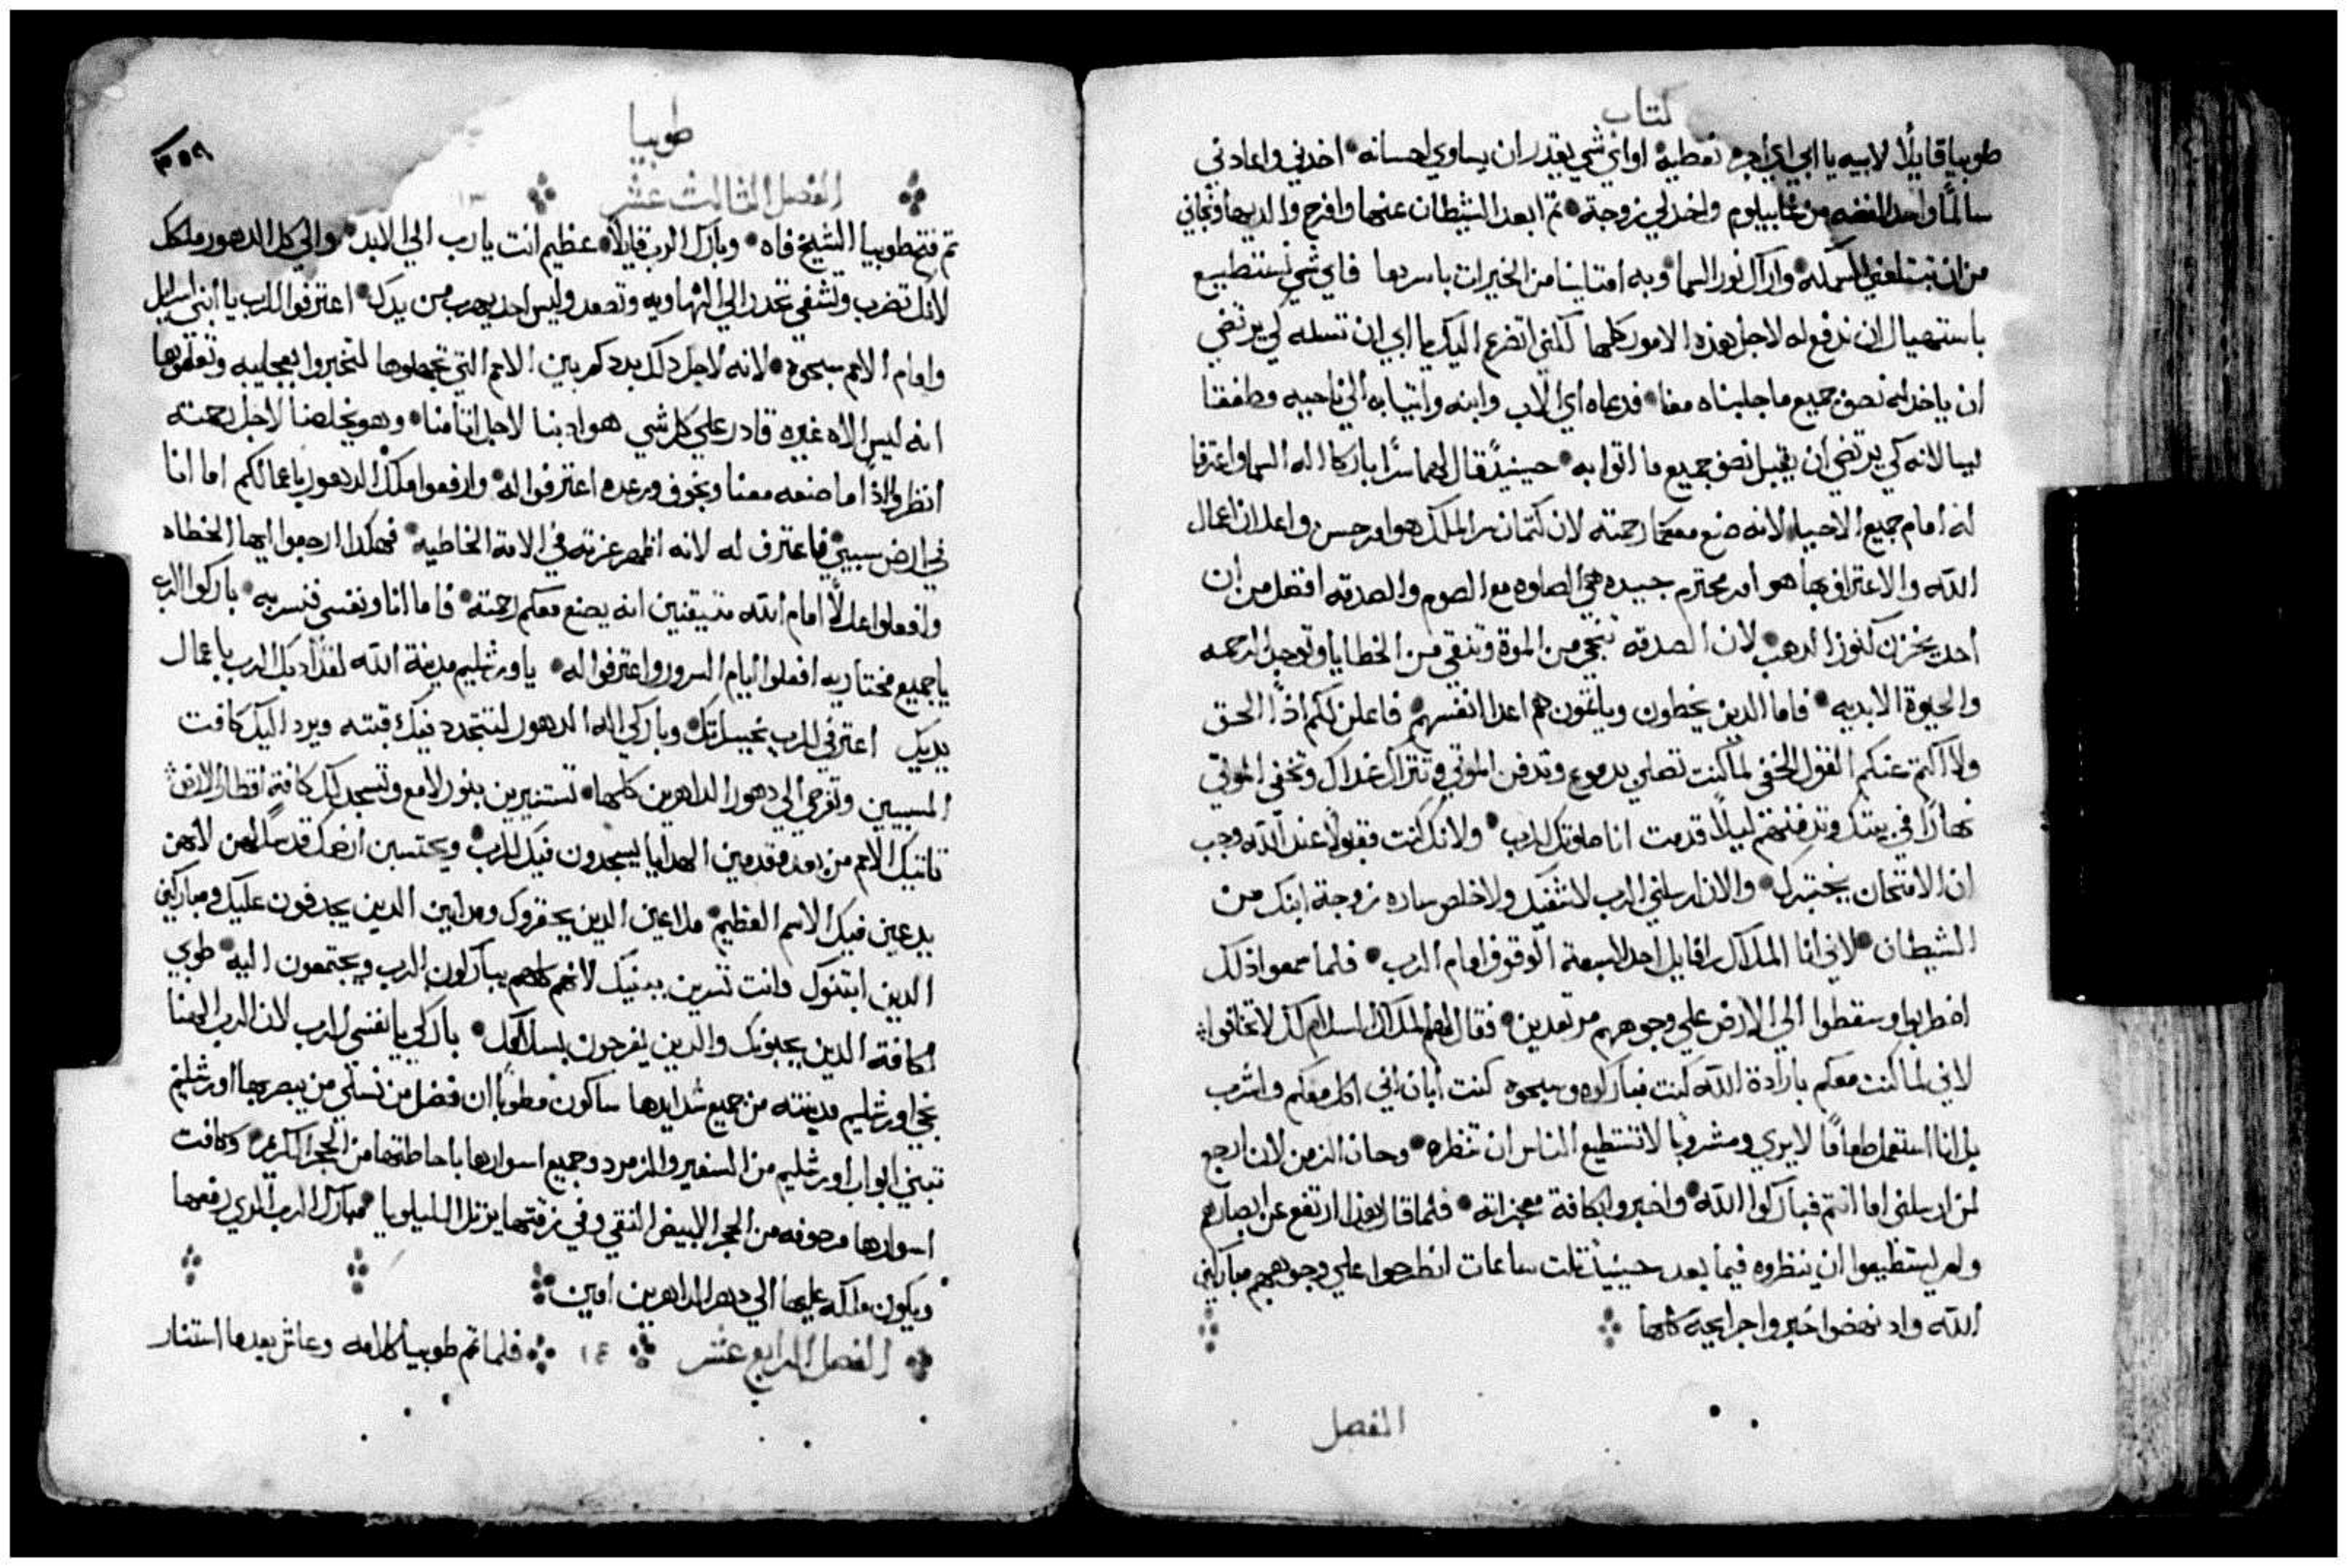 كتاب
طوبيا قايلًا لابيه يا ابي اي اجره نعطيه او اي شي يقدر ان يساوي احسانه اخدني واعادني
سالمًا واخد الفضه من غابيلوم واخد لي زوجة ثم ابعد الشيطان عنها وافرح والديها ونجاني
من ان تبتلعني السمكه واراك نور السما وبه امتلينا من الخيرات باسرها فاي شي نستطيع
باستهيال ان ندفع له لاجل هذه الامور كلها لكنني اتضرع اليك يا ابي ان تسله لي يرتضي
ان ياخد له نصف جميع ما جلبناه معنا فدعاه اي الاب وابنه واتيا به الي ناحيه وطفقتا
ليسالانه كي يرتضي ان يقبل نصف جميع ما اتوا به حينيدٍ قال لهما سرًا باركا اله السما واعترفا
له امام جميع الاحيا لانه صنع معكما رحمته لان كتمان سر الملك هو امر حسن واعلان اعمال
الله والاعتراف بها هو امر محترم جيده هي الصلوه مع الصوم والصدقه افضل من ان
احد يخزن كنوز الدهب لان الصدقه تنجي من الموة وتنقي من الخطايا وتوجد الرحمه
والحيوة الابديه فاما الدين يخطون وياتمون هم اعدا انفسهم فاعلن لكم اذًا الحق
ولا اكتم عنكم القول الخفي لما كنت تصلي بدموع وتدفن الموتي وتترك غداك وتخفي الموتي
نهارًا في بيتك وتدفنهم ليلًا قدمت انا صلوتك للرب ولانك كنت مقبولًا عند الله وجب
ان الامتحان يختبرك والان ارسلني الرب لاشفيك ولاخلص ساره زوجة ابنك من
الشيطان لاني انا الملاك رافايل احد السبعة الوقوف امام الرب فلما سمعوا ذلك
اضطربوا وسقطوا الي الارض علي وجوههم مرتعدين فقال لهم الملاك السلام لكم لا تخافوا
لاني لما كنت معكم بارادة الله كنت فباركوه وسبحوه كنت ابان اني اكل معكم واشرب
بل انا استعمل طعامًا لا يري ومشروبا لا تستطيع الناس ان تنظره وحان الزمن لان ارجع
لمن ارسلني اما انتم فباركوا الله واخبروا بكافة معجزاته فلما قال هذا ارتفع عن ابصارهم
ولم يستطيعوا ان ينظروه فيما بعد حينيدٍ ثلت ساعات انطرحوا علي وجوههم مباركين
الله واد نهضوا اخبروا جرايحيه كلها
الفصل
طوبيا
٣٥٩
الفصل الثالث عشر ١٣
ثم فتح طوبيا الشيخ فاه وبارك الرب قايلًا عظيم انت يا رب الي الابد والي كل الدهور ملكك
لانك تضرب وتشفي تحدر الي الهاويه وتصعد وليس احد يهرب من يدك اعترفوا للرب يا بني اسرايل
وامام الامم سبحوه لانه لاجل دلك بددكم بين الامم التي تجهلوها لتخبروا بعجايبه وتعلموها
انه ليس الاه غيره قادر علي كل شي هو ادبنا لاجل اتامنا وهو يخلصنا لاجل رحمته
انظروا اذًا ما صنعه معنا وبخوف ورعده اعترفوا له وارفعوا ملك الدهور باعمالكم اما انا
في ارض سبيي فاعترف له لانه اظهر عزته في الامة الخاطيه فهكدا ارجعوا ايها الخطاه
وافعلوا عدلًا امام الله متيقنين انه يصنع معكم رحمته فاما انا ونفسي فنسر به باركوا الرب
يا جميع مختاريه افعلوا ايام السرور واعترفوا له يا اورشليم مدينة الله لقد ادبك الرب باعمال
يديك اعترفي للرب بخيراتك وباركي اله الدهور لتتجدد فيك قبته ويرد اليك كافت
المسبيين وتفرحي الي دهور الداهرين كلها تستنيرين بنور لامع وتسجد لك كافة اقطار الارض
تاتيك الامم من بعد مقدمين الهدايا يسجدون فيك للرب ويحتسبن ارضك قدسًا لهن لانهن
يدعين فيك الاسم العظيم ملاعين الدين يحقروك ومدانين الدين يجدفون عليك ومباركين
الدين ابتنوك وانت تسرين ببنيك لانهم كلهم يباركون الرب ويجتمعون اليه طوبي
لكافة الدين يحبونك والدين يفرحون بسلامك باركي يا نفسي الرب لان الرب الهنا
نجي اورشليم مدينته من جميع شدايدها ساكون مطوبا ان فضل من نسلي من يبصر بها اورشليم
تبتني ابواب اورشليم من السفير والزمرد وجميع اسوارها باحاطتها من الحجر الكريم وكافت
اسوارها مرصوفه من الحجر الابيض النقي وفي زقتها يرتل الليلويا مبارك الرب الدي رفعها
ويكون ملكه عليها الي دهر الداهرين امين
الفصل الرابع عشر ١٤ فلما تم طوبيا كلامه وعاش بعدما استنار